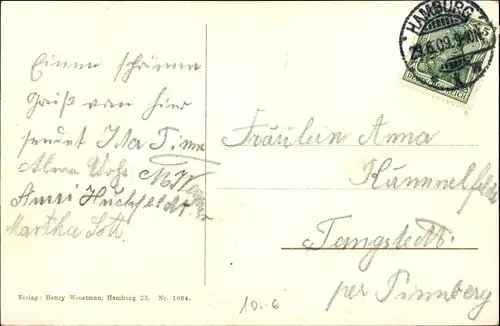 Einen schönen
Gruß von hier
sendet Ida Timm
Alma
Anni Huckfeldt.
Martha Lott.
HAMBURG
29.6.09. 9-10 N.
DEUTSCHES REICH
Fräulein Anna
Kummelfeldt
Tangstedt.
per Pinneberg
Verlag: Henry Wosetman, Hamburg 23. Nr. 1004.
10.-6